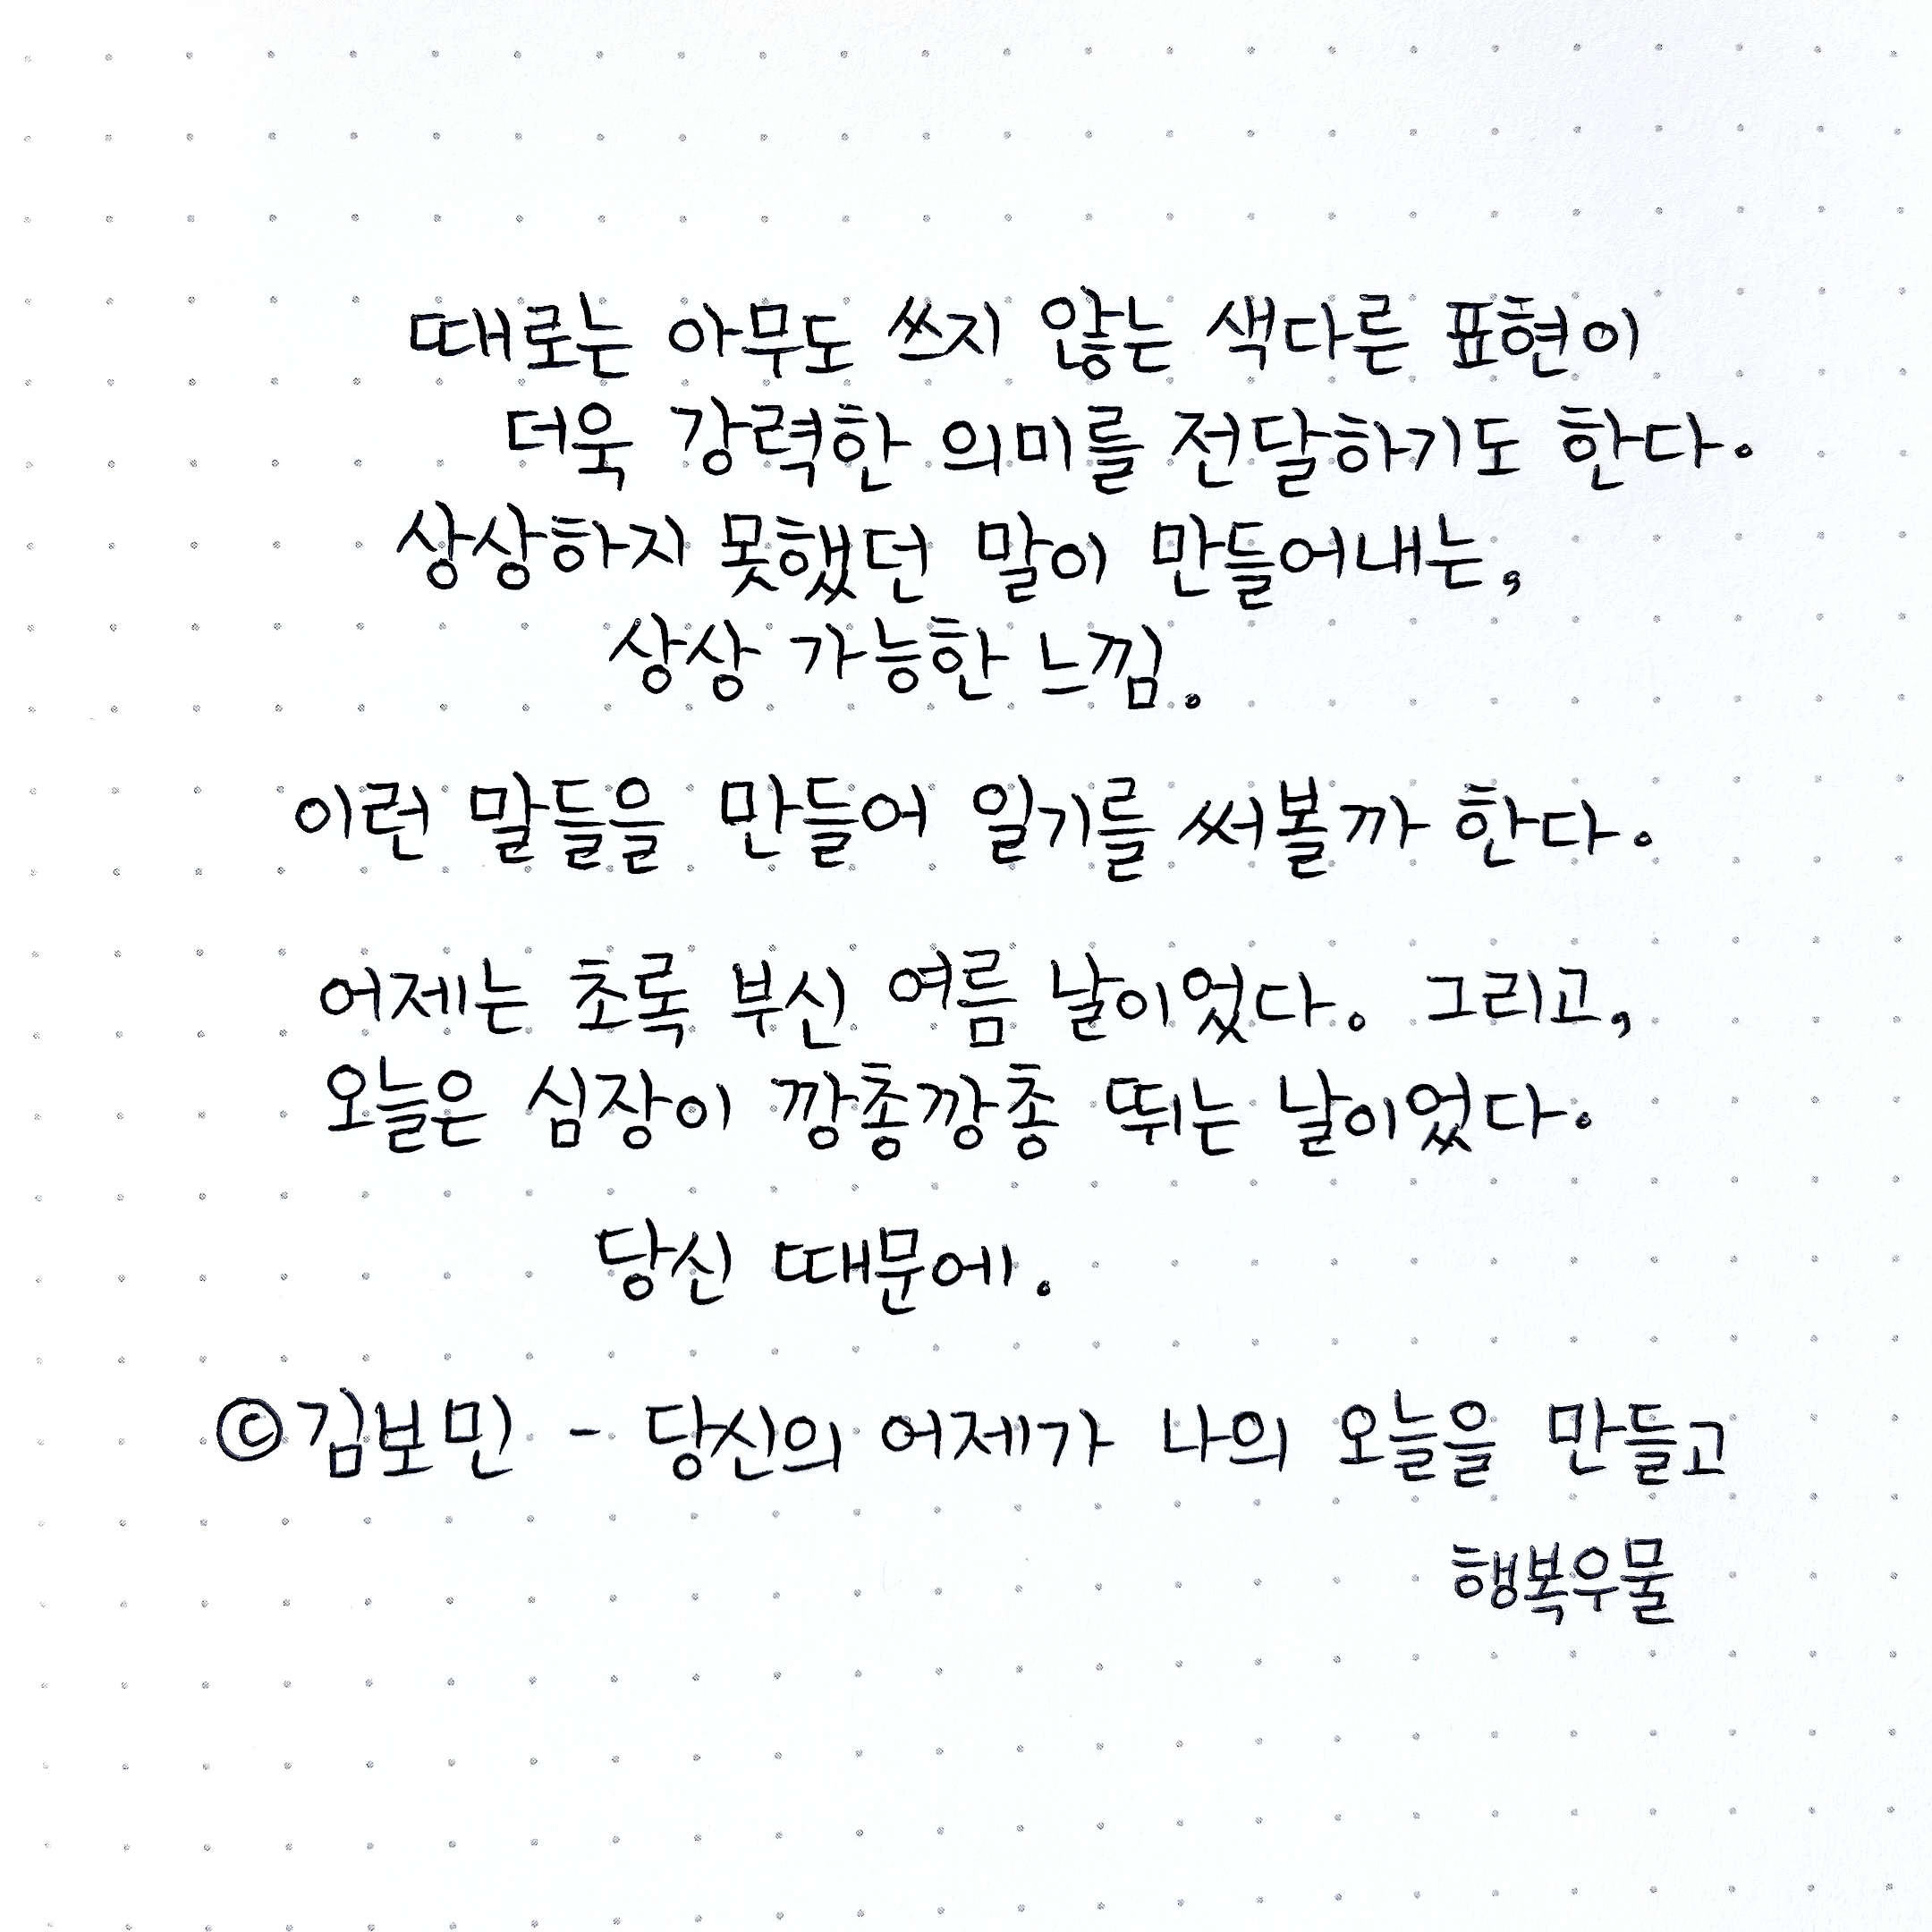 때로는 아무도 쓰지 않는 색다른 표현이
더욱 강력한 의미를 전달하기도 한다.
상상하지 못했던 말이 만들어내는,
상상 가능한 느낌.
이런 말들을 만들어 일기를 써볼까 한다.
어제는 초록 부신 여름 날이었다. 그리고,
오늘은 심장이 깡총깡총 뛰는 날이었다.
당신 때문에.
©김보민 - 당신의 어제가 나의 오늘을 만들고
행복우물